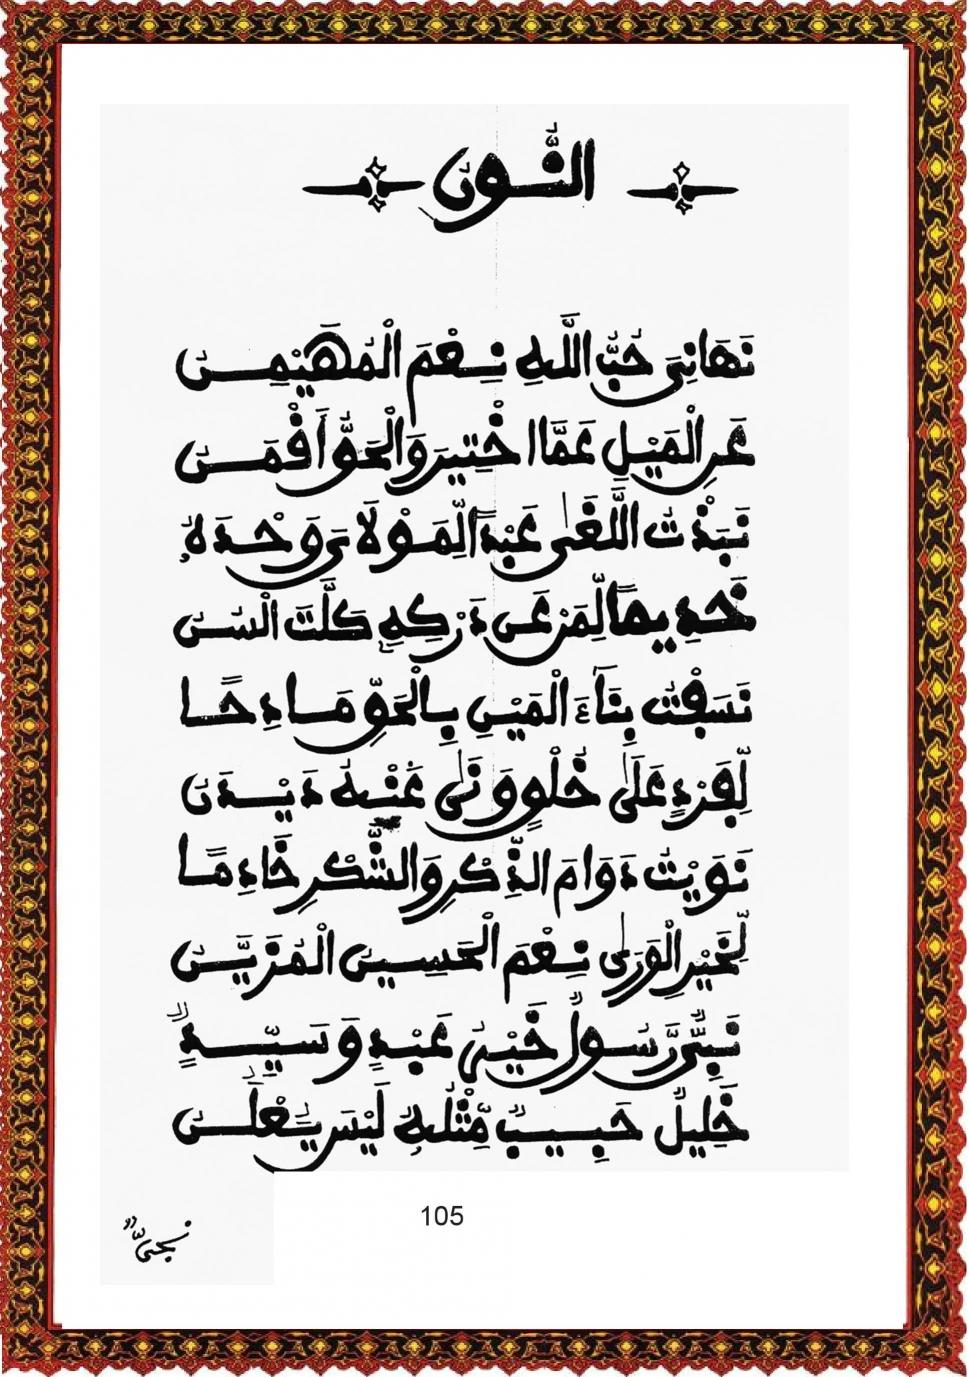 النُّون
نَهَانِيَ حُبُّ اللَّهِ نِعْمَ الْمُهَيْمِنُ
عَنِ الْمَيْلِ عَمَّا اخْتِيرَ وَالْحَقُّ أَقْمَنُ
نَبَذْتُ اللَّغَى عَبْدًا لِمَوْلَايَ وَحْدَهُ
خَدِيمًا لِّمَنْ عَن دَرْكِهِ كَلَّتَ الْسُنُ
نَسَفْتُ بِنَاءَ الْمَيْنِ بِالْحَقِّ مَادِحًا
لِّفَرْدٍ عَلَى خَلْقٍ وَنَى عَنْهُ دَيْدَنُ
نَوَيْتُ دَوَامَ الذِّكْرِ وَالشُّكْرِ خَادِمًا
لِّخَيْرِ الْوَرَى نِعْمَ الْحَسِينُ الْمُزَيَّنُ
نَبِيٌّ رَّسُولٌ خَيْرُ عَبْدٍ وَسَيِّدٍ
خَلِيلٌ حَبِيبٌ مِّثْلُهُ لَيْسَ يَعْلَنُ
105